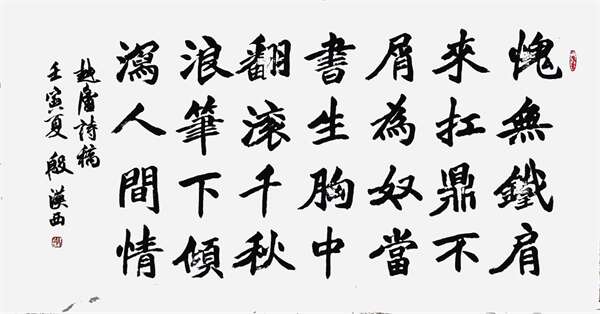 愧無鐵肩
來扛鼎不
屑為奴當
書生胸中
翻滾千秋
浪筆下傾
瀉人間情
詩稿
壬寅夏 殷漢西